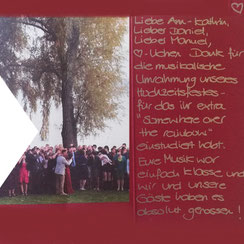 Liebe Ann-Kathrin,
Lieber Daniel,
Liebe Manuel,
♡-lichen Dank für
die musikalische
Umrahmung unseres
Hochzeitsfestes -
für das ihr extra
"Somewhere over
the rainbow"
einstudiert habt.
Eure Musik war
einfach klasse und
wir und unsere
Gäste haben es
absolut genossen!